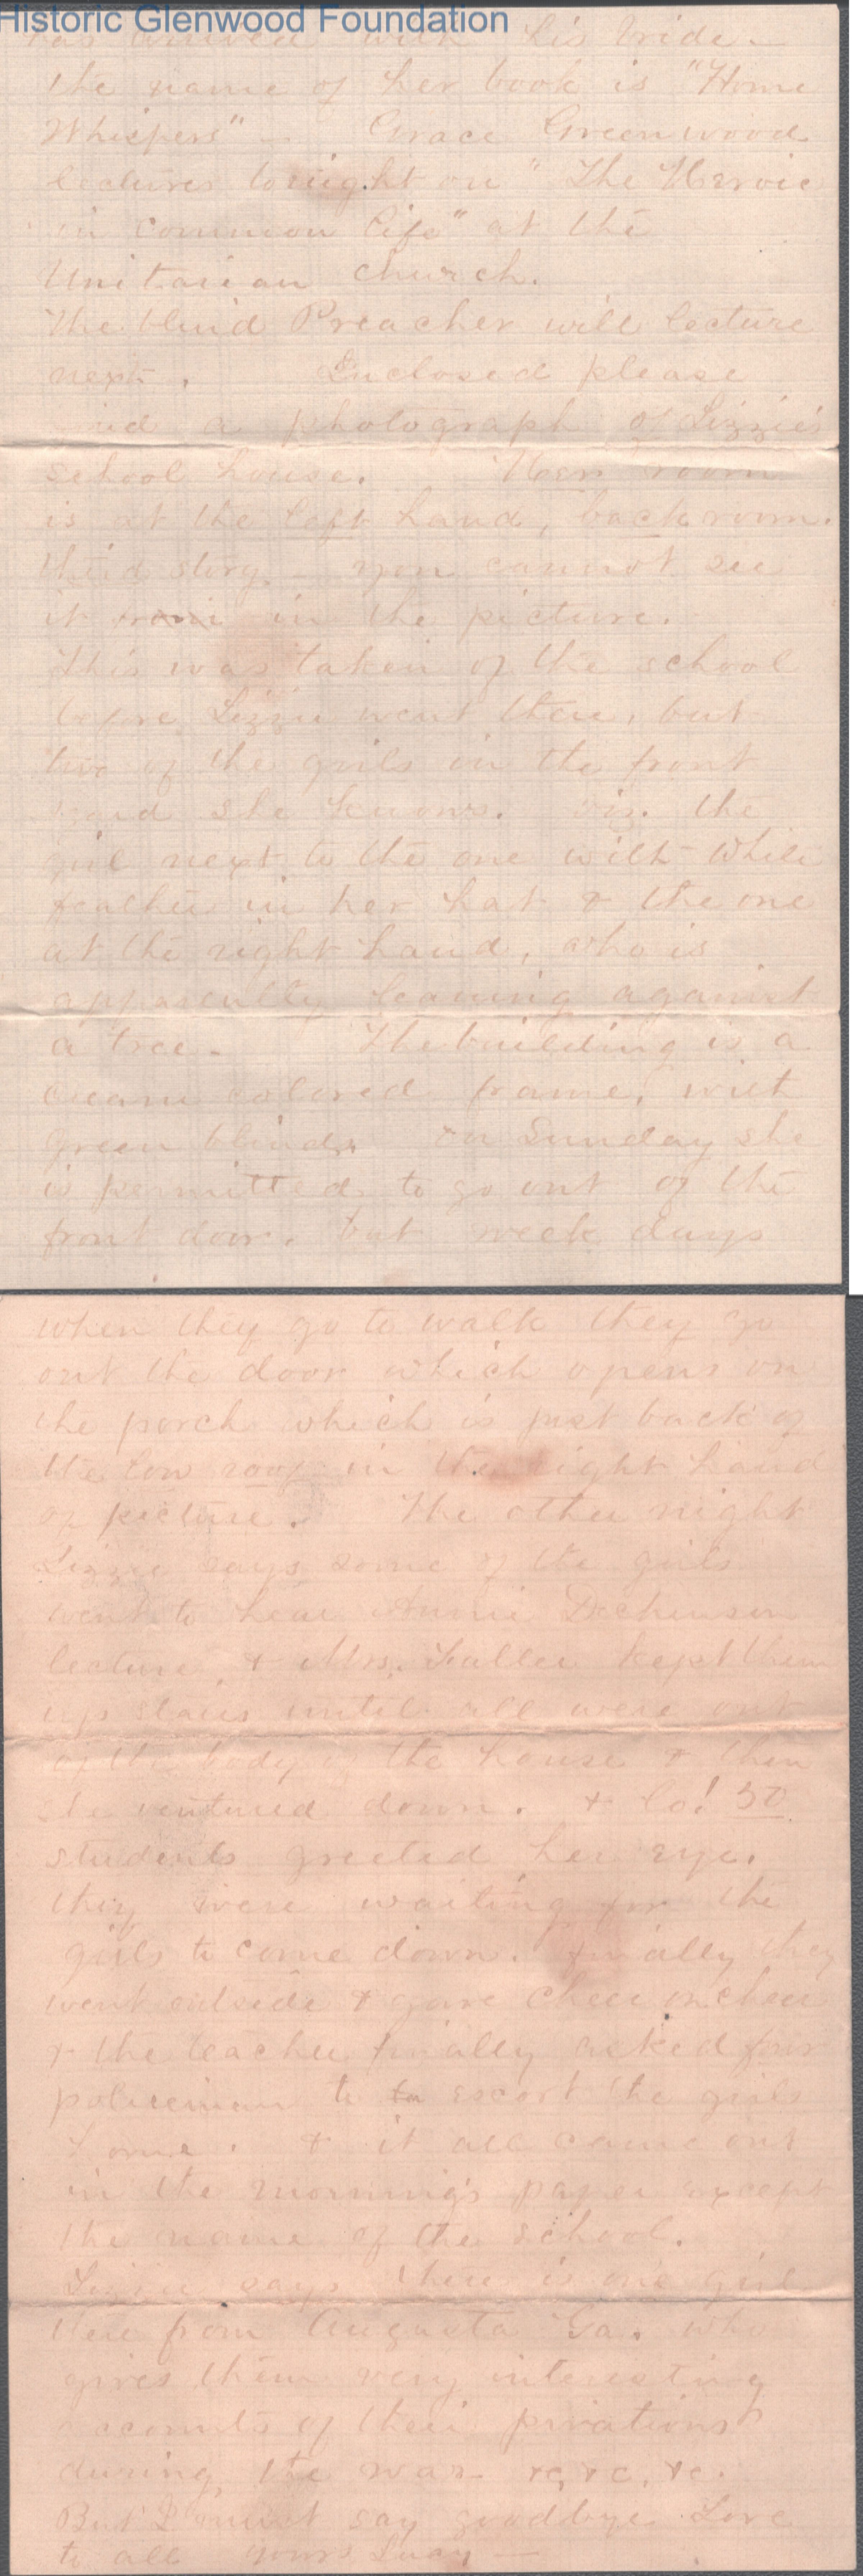 Historic Glenwood Foundation
has arrived with his bride -
the name of her book is "Home
Whispers" - Grace Greenwood
lectures tonight on "The Heroic
in common life" at the
Unitarian church.
The blind Preacher will lecture
next. Enclosed please
find a photograph of Lizzie's
school house. Her room
is at the left hand, back room.
third story - you cannot see
it from in the picture.
This was taken of the school
before Lizzie went there, but
two of the girls in the front
yard she knows. viz. the
girl next to the one with white
feather in her hat & the one
at the right hand, who is
apparently leaning against
a tree - The building is a
cream colored frame, with
green blinds. On Sunday she
is permitted to go out of the
front door. but week days
when they go to walk they go
out the door which opens on
the porch which is just back of
the low roof in the right hand
of picture. The other night
Lizzie says some of the girls
went to hear Annie Dickinson
lecture, & Mrs. kept them
up stairs until all were out
of the body of the house & then
she ventured down. & lo! 50
students greeted her eye.
they were waiting for the
girls to come down. finally they
went outside & gave cheer on cheer
& the teacher finally asked four
policeman to to escort the girls
home. & it all came out
in the morning's paper except
the name of the school.
Lizzie says there is one girl
there from Augusta Ga. who
gives them very interesting
accounts of their privations
during the war - &c, &c, &c.
But I must say goodbye Love
to all yours Lucy -